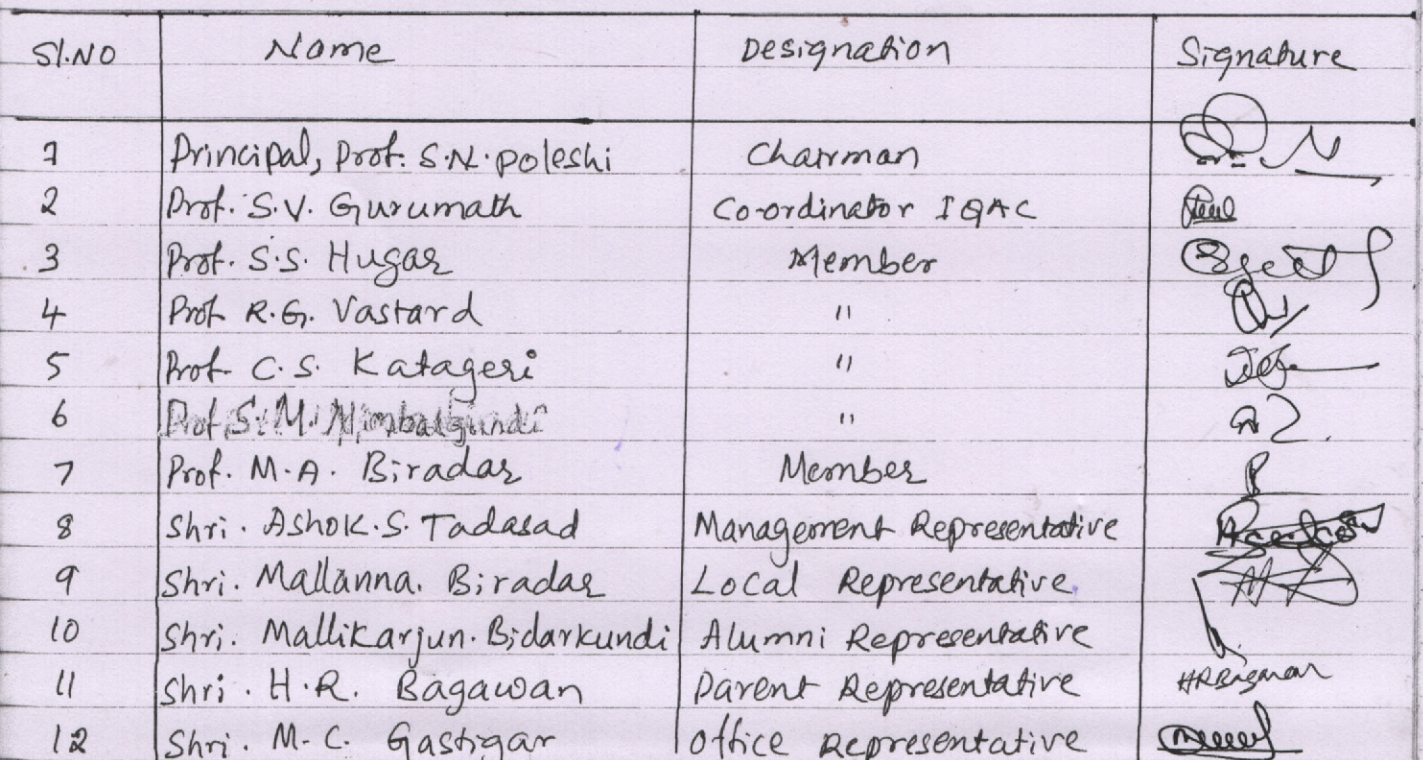 Sl.NO Name Designation Signature
1 Principal, Prof. S.N. Poleshi Chairman
2 Prof. S.V. Gurumath Co-ordinator IQAC
3 Prof. S.S. Hugar Member
4 Prof R.G. Vastard "
5 Prof C.S. Katageri "
6 Prof S.M. "
7 Prof. M.A. Biradar Member
8 Shri. Ashok.S. Tadasad Management Representative
9 Shri. Mallanna. Biradar Local Representative
10 Shri. Mallikarjun. Bidarkundi Alumni Representative
11 Shri. H.R. Bagawan Parent Representative HRBagawan
12 Shri. M.C. Gastigar Office Representative